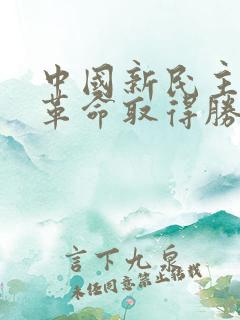 中國新民主
革命取得勝
言下九泉
未经同意禁止搭我